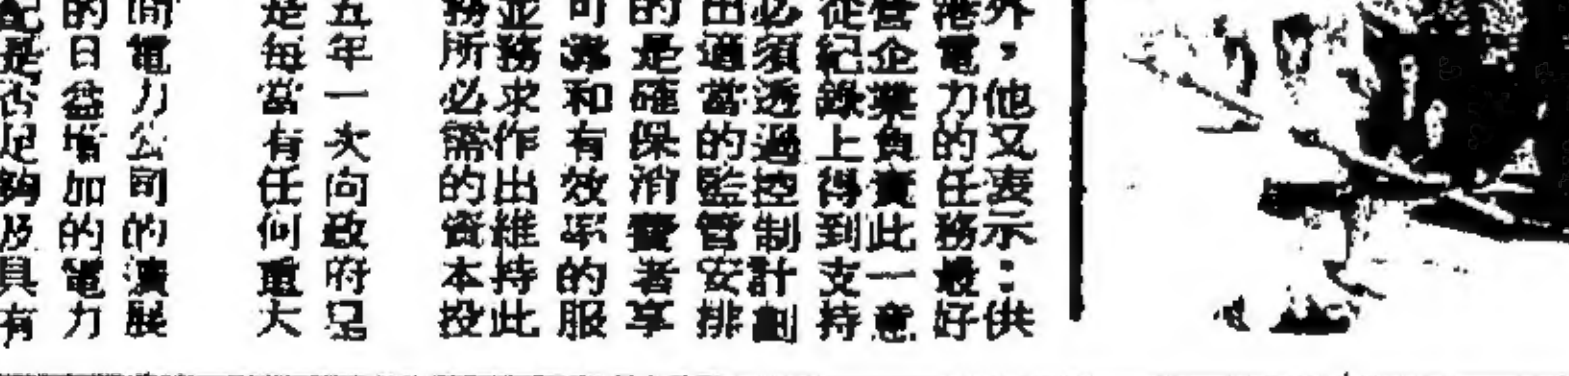 外，他又表示：供
港電力的任務最好
營企業負責此一意
從紀錄上得到支持
必須透過控制計劃
出適當的監管安排
的是確保消費者享
可靠和有效率的服
並務求作出維持此
務所必需的資本投
五年一次向政府呈
是每當有任何重大
間電力公司的擴展
的日益增加的電力
是否足夠及具有